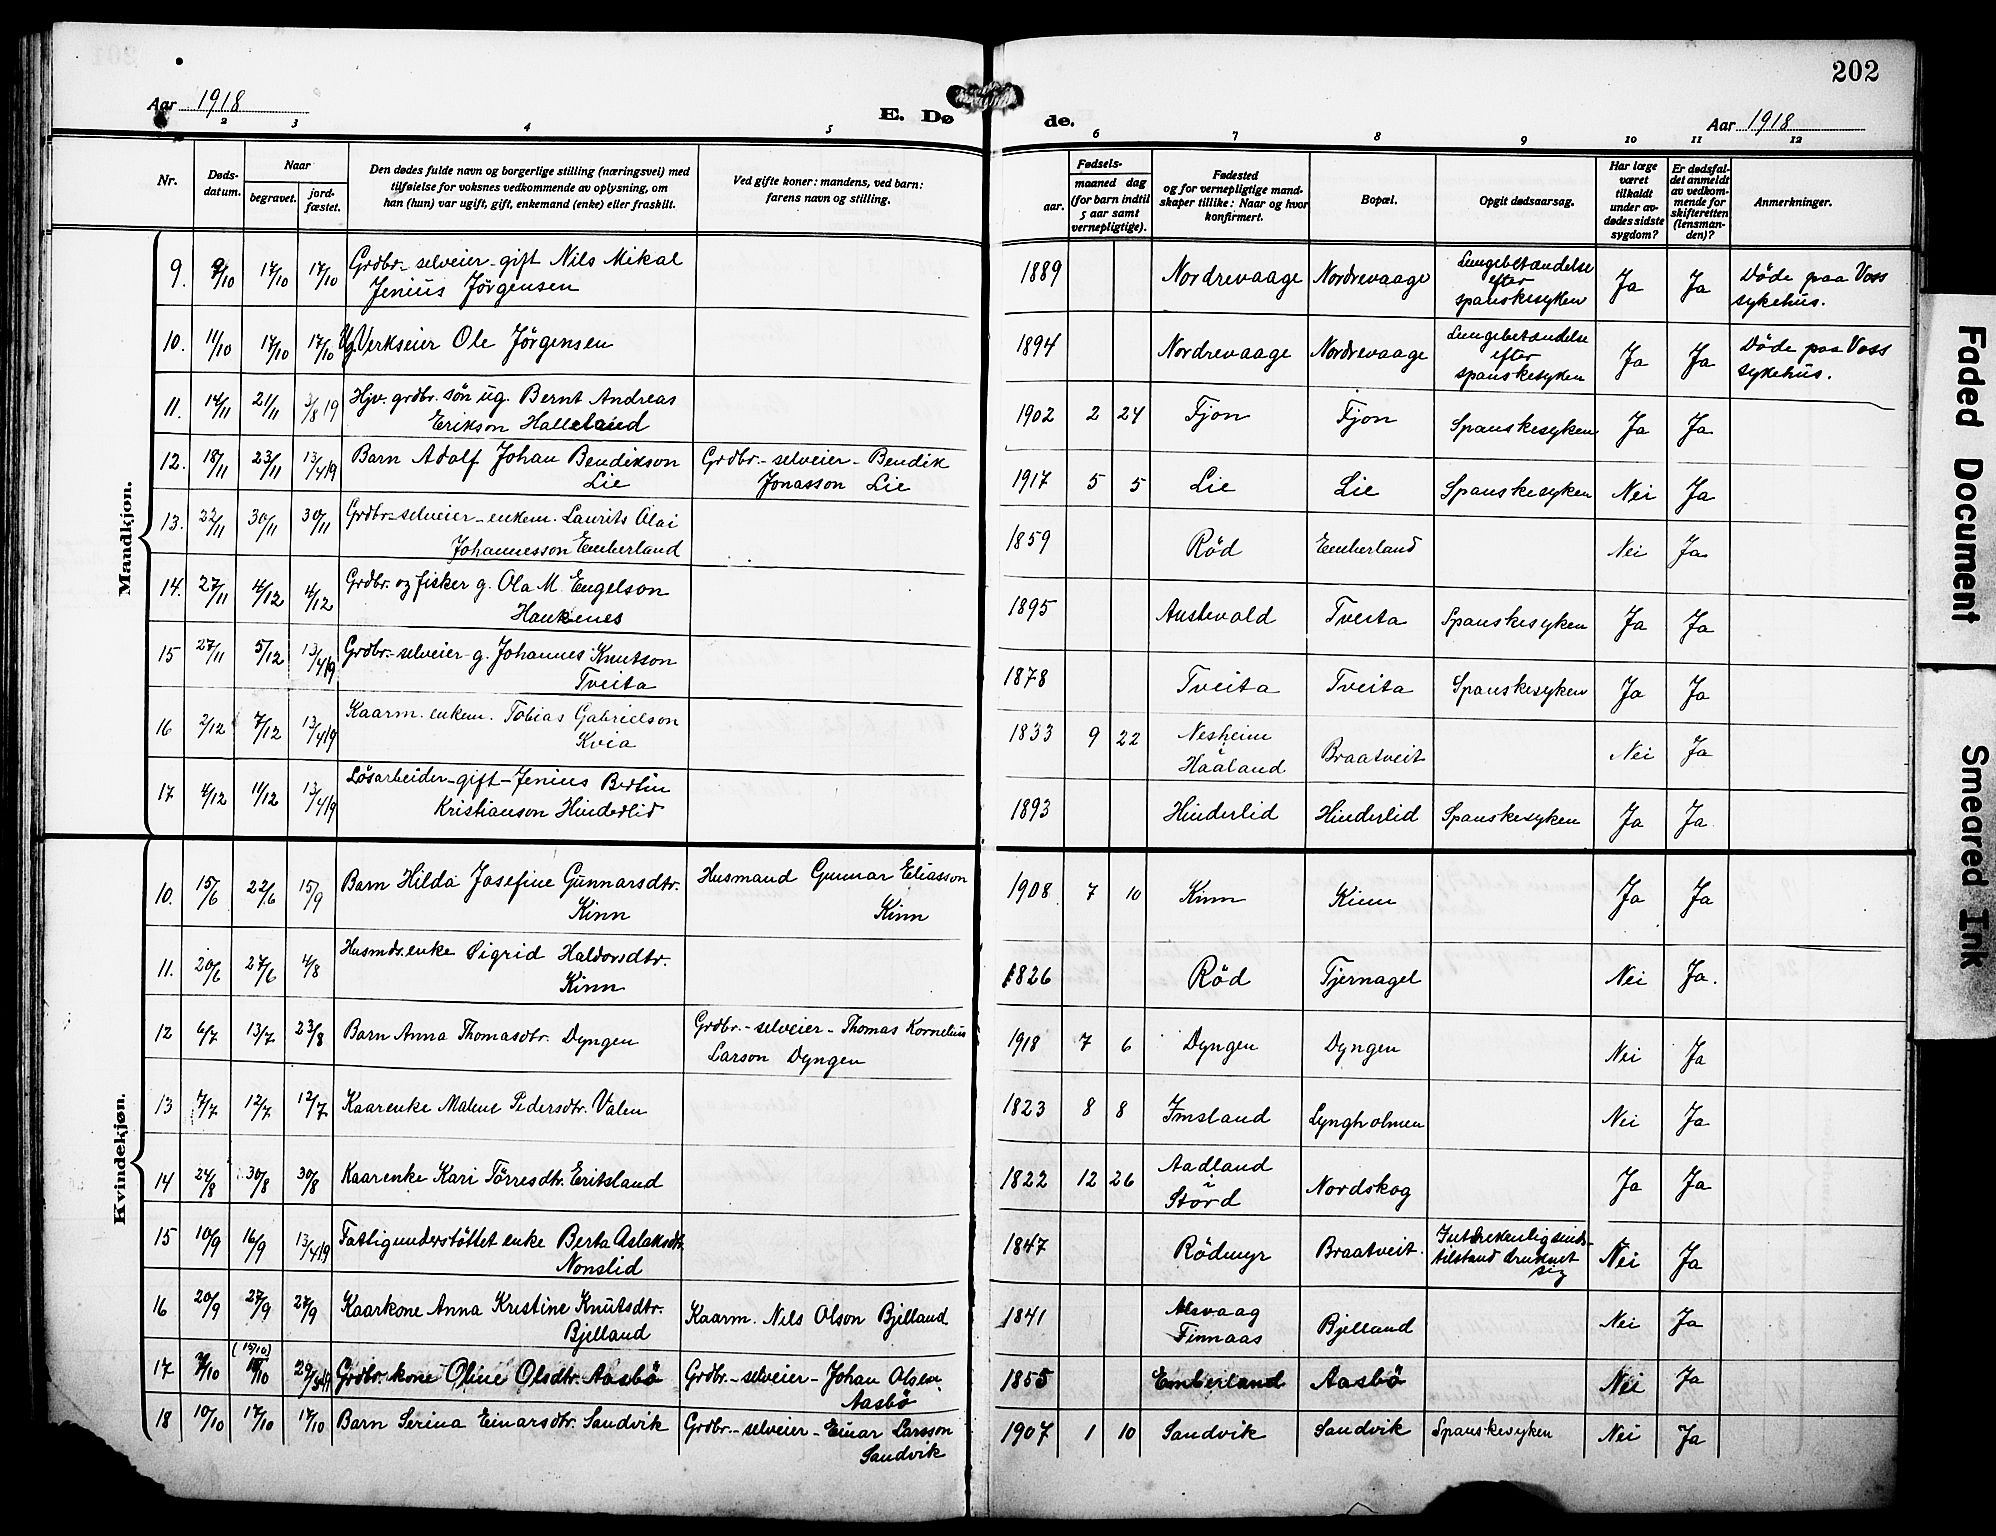 202
Aar 1918
E. Dø
de.
Aar 1918
2 3 4 5 6 7 8 9 10 11 12
Nr.
Døds-
datum.
Naar
begravet.
jord-
fæstet.
Den dødes fulde navn og borgerlige stilling (næringsvei) med
tilføielse for voksnes vedkommende av oplysning, om
han (hun) var ugift, gift, enkemand (enke) eller fraskilt.
Ved gifte koner: mandens, ved barn:
farens navn og stilling.
Fødsels-
aar.
maaned dag
(for barn indtil
5 aar samt
vernepligtige).
Fødested
og for vernepligtige mand-
skaper tillike: Naar og hvor
konfirmert.
Bopæl.
Opgit dødsaarsag.
Har læge
været
tilkaldt
under av-
dødes sidste
sygdom?
Er dødsfal-
det anmeldt
av vedkom-
mende for
skifteretten
(lensman-
den)?
Anmerkninger.
Mandkjøn.
9. 9/10 17/10 17/10 Grdbr.- selveier - gift Nils Mikal
Jenius Jørgensen
1889 Nordrevaage Nordrevaage Lungebetændelse
efter
spanskesyken
Ja Ja Døde paa Voss
sykehus.
10. 11/10 17/10 17/10 Ug. Verkseier Ole Jörgensen
1894 Nordrevaage Nordrevaage Lungebetændelse
efter
spanskesyken
Ja Ja Døde paa Voss
sykehus.
11. 14/11 21/11 3/8 19 Hjv. grdbr. søn ug. Bernt Andreas
Erikson Halleland
1902 2 24 Tjon Tjon Spanskesyken Ja Ja
12. 18/11 23/11 13/4 19 Barn Adolf Johan Bendikson
Lie
Grdbr.- selveier - Bendik
Jonasson Lie
1917 5 5 Lie Lie Spanskesyken Nei Ja
13. 22/11 30/11 30/11 Grdbr.- selveier - enkem. Laurits Olai
Johannesson Emberland
1859 Röd Emberland Nei Ja
14. 27/11 4/12 4/12 Grdbr. og fisker g. Ola M. Engelson
Haukenes
1895 Austevold Tveita Spanskesyken Ja Ja
15 27/11 5/12 13/4 19 Grdbr.- selveier - g. Johannes Knutson
Tveita
1878 Tveita Tveita Spanskesyken Ja Ja
16 2/12 7/12 13/4 19 Kaarm. enkem. Tobias Gabrielson
Kvia
1833 9 22 Nesheim
Haaland
Braatveit Nei Ja
17 4/12 11/12 13/4 19 Lösarbeider - gift - Jenius Bertin
Kristianson Hinderlid
1893 Hinderlid Hinderlid Spanskesyken Ja Ja.
Kvindekjøn.
10. 15/6 22/6 15/9 Barn Hilda Josefine Gunnarsdtr.
Kinn
Husmand Gunnar Eliasson
Kinn
1908 7 10 Kinn Kinn Ja Ja
11. 20/6 27/6 4/8 Husmds. enke Sigrid Haldorsdtr.
Kinn
1826 Röd Tjernagel Nei Ja.
12 6/7 13/7 23/8 Barn Anna Thomasdtr. Dyngen
Grdbr.- selveier - Thomas Kornelius
Larson Dyngen
1918 7 6 Dyngen Dyngen Nei Ja
13 7/7 12/7 12/7 Kaarenke Malene Pedersdtr. Valen
1823 8 8 Imsland Lyngholmen Nei Ja
14 24/8 30/8 30/8 Kaarenke Kari Tørresdtr. Eritsland
1822 12 26 Aadland
i
Stord
Nordskog Ja Ja
15 10/9 16/9 13/4 19 Fattigunderstöttet enke Berta Aslaksdtr.
Nonslid
1847 Rödmyr Braatveit. sinds-
tilstand druknet
sig
Nei Ja
16 20/9 27/9 27/9 Kaarkone Anna Kristine Knutsdtr.
Bjelland
Kaarm. Nils Olson Bjelland
1841 Alsvaag
Finnaas
Bjelland Nei Ja
(15/10)
17 Grdbr. kone Oline Olsdtr. Aasbö
Grdbr.- selveier - Johan Olsen
Aasbö
1855 Emberland Aasbö Nei Ja
18 10/10 17/10 17/10 Barn Serina Einarsdtr. Sandvik
Grdbr.- selveier - Einar Larsson
Sandvik
1907 1 10 Sandvik Sandvik Spanskesyken Nei Ja
Faded Document
Smeared Ink